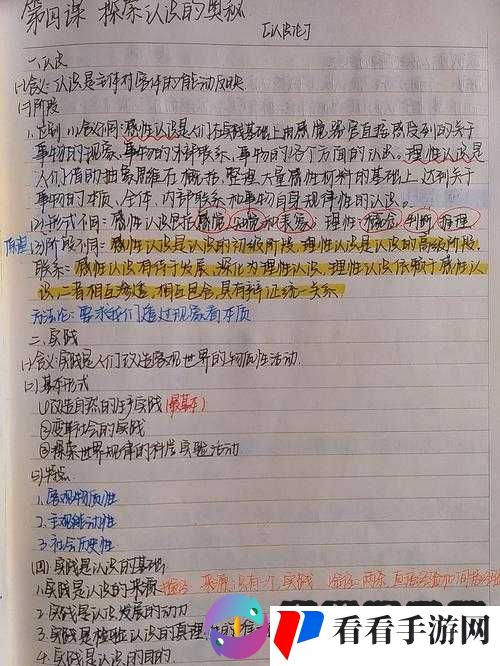 第四课 探索认识的奥秘
【认识论】
一、认识
(1)含义:认识是主体对客体的能动反映
(2)阶段
1.区别:(1)含义不同:感性认识是人们在实践基础上用感觉器官直接感受到的关于
事物的现象、事物的外部联系、事物的各个方面的认识。理性认识是
人们借助抽象思维在概括、整理大量感性材料的基础上,达到关于
事物的本质、全体、内部联系和事物自身规律性的认识。
(2)形式不同:感性认识包括感觉、知觉和表象;理性:概念、判断、推理
(3)阶段不同:感性认识是认识的初级阶段,理性认识是认识的高级阶段
联系:感性认识有待于发展、深化为理性认识,理性认识依赖于感性认
识,二者相互渗透,相互包含,具有辩证统一关系
方法论:要求我们透过现象看本质
二、实践
(一)含义:实践是人们改造客观世界的物质性活动.
(二)基本形式
①改造自然的生产实践(最基本)
②变革社会的实践
③探索世界规律的科学实验活动
(三)特点
1.客观物质性
2.主观能动性
3.社会历史性
(四)实践是认识的基础
1.实践是认识的来源 来源只有一个,实践
2.实践是认识发展的动力
3.实践是检验认识的真理性的唯一
4.实践是认识的目的
看看手游网